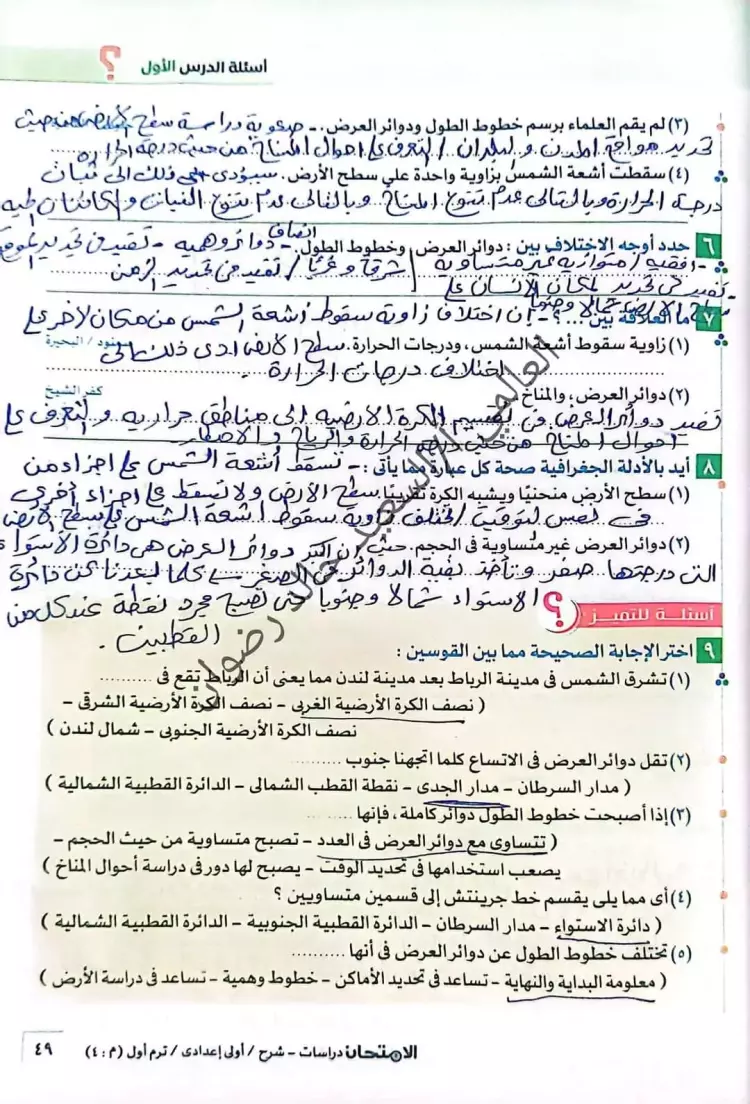 أسئلة الدرس الأول
(٣) لم يقم العلماء برسم خطوط الطول ودوائر العرض. - صعوبة دراسة سطح الأرض من حيث
تحديد مواقع المدن والبلدان / التعرف على احوال المناخ من حيث درجة الحرارة
(٤) سقطت أشعة الشمس بزاوية واحدة علي سطح الأرض. سيؤدى ذلك الى ثبات
درجة الحرارة وبالتالى عدم تنوع المناخ وبالتالى عدم تنوع النبات والكائنات الحية
٦ حدد أوجه الاختلاف بين : دوائر العرض، وخطوط الطول. انصاف دوائر وهميه - تفيد فى تحديد الموقع
- افقية / متوازيه غير متساوية / شرقا وغربا / تفيد فى تحديد الزمن
تفيد فى تحديد المكان الإنسان على
سطح الارض شمالا وجنوبا
٧ ما العلاقة بين ...؟ - إن اختلاف زاوية سقوط أشعة الشمس من مكان لآخر على
(١) زاوية سقوط أشعة الشمس، ودرجات الحرارة. سطح الارض ادى ذلك الى سمنود / البحيرة
اختلاف درجات الحرارة.
(٢) دوائر العرض، والمناخ. كفر الشيخ
تفيد دوائر العرض فى تقسيم الكرة الارضية إلى مناطق حراريه والتعرف على
احوال المناخ من حيث درجة الحرارة والرياح والامطار
٨ أيد بالأدلة الجغرافية صحة كل عبارة مما يأتى : - تسقط أشعة الشمس على اجزاء من
(١) سطح الأرض منحنيًا ويشبه الكرة تقريبًا. سطح الأرض ولا تسقط على اجزاء أخرى
فى نفس التوقيت / تختلف زاوية سقوط اشعة الشمس على سطح الأرض
(٢) دوائر العرض غير متساوية في الحجم. حيث إن اكبر دوائر العرض هى دائرة الاستواء
التى درجتها صفر وتأخذ بقية الدوائر فى الصغر كلما بعدنا عن دائرة
الاستواء شمالا وجنوبا حتى تصبح مجرد نقطة عند كل من
القطبين.
أسئلة للتميز
٩ اختر الإجابة الصحيحة مما بين القوسين :
(١) تشرق الشمس فى مدينة الرباط بعد مدينة لندن مما يعنى أن الرباط تقع فى ..........
( نصف الكرة الأرضية الغربى - نصف الكرة الأرضية الشرقى -
نصف الكرة الأرضية الجنوبى - شمال لندن )
(٢) تقل دوائر العرض فى الاتساع كلما اتجهنا جنوب ..........
( مدار السرطان - مدار الجدى - نقطة القطب الشمالى - الدائرة القطبية الشمالية )
(٣) إذا أصبحت خطوط الطول دوائر كاملة، فإنها ..........
( تتساوى مع دوائر العرض فى العدد - تصبح متساوية من حيث الحجم -
يصعب استخدامها فى تحديد الوقت - يصبح لها دور فى دراسة أحوال المناخ )
(٤) أى مما يلى يقسم خط جرينتش إلى قسمين متساويين ؟
( دائرة الاستواء - مدار السرطان - الدائرة القطبية الجنوبية - الدائرة القطبية الشمالية )
(٥) تختلف خطوط الطول عن دوائر العرض فى أنها ..........
( معلومة البداية والنهاية - تساعد فى تحديد الأماكن - خطوط وهمية - تساعد فى دراسة الأرض )
الامتحان دراسات - شرح / أولى إعدادى / ترم أول (م : ٤)
٤٩